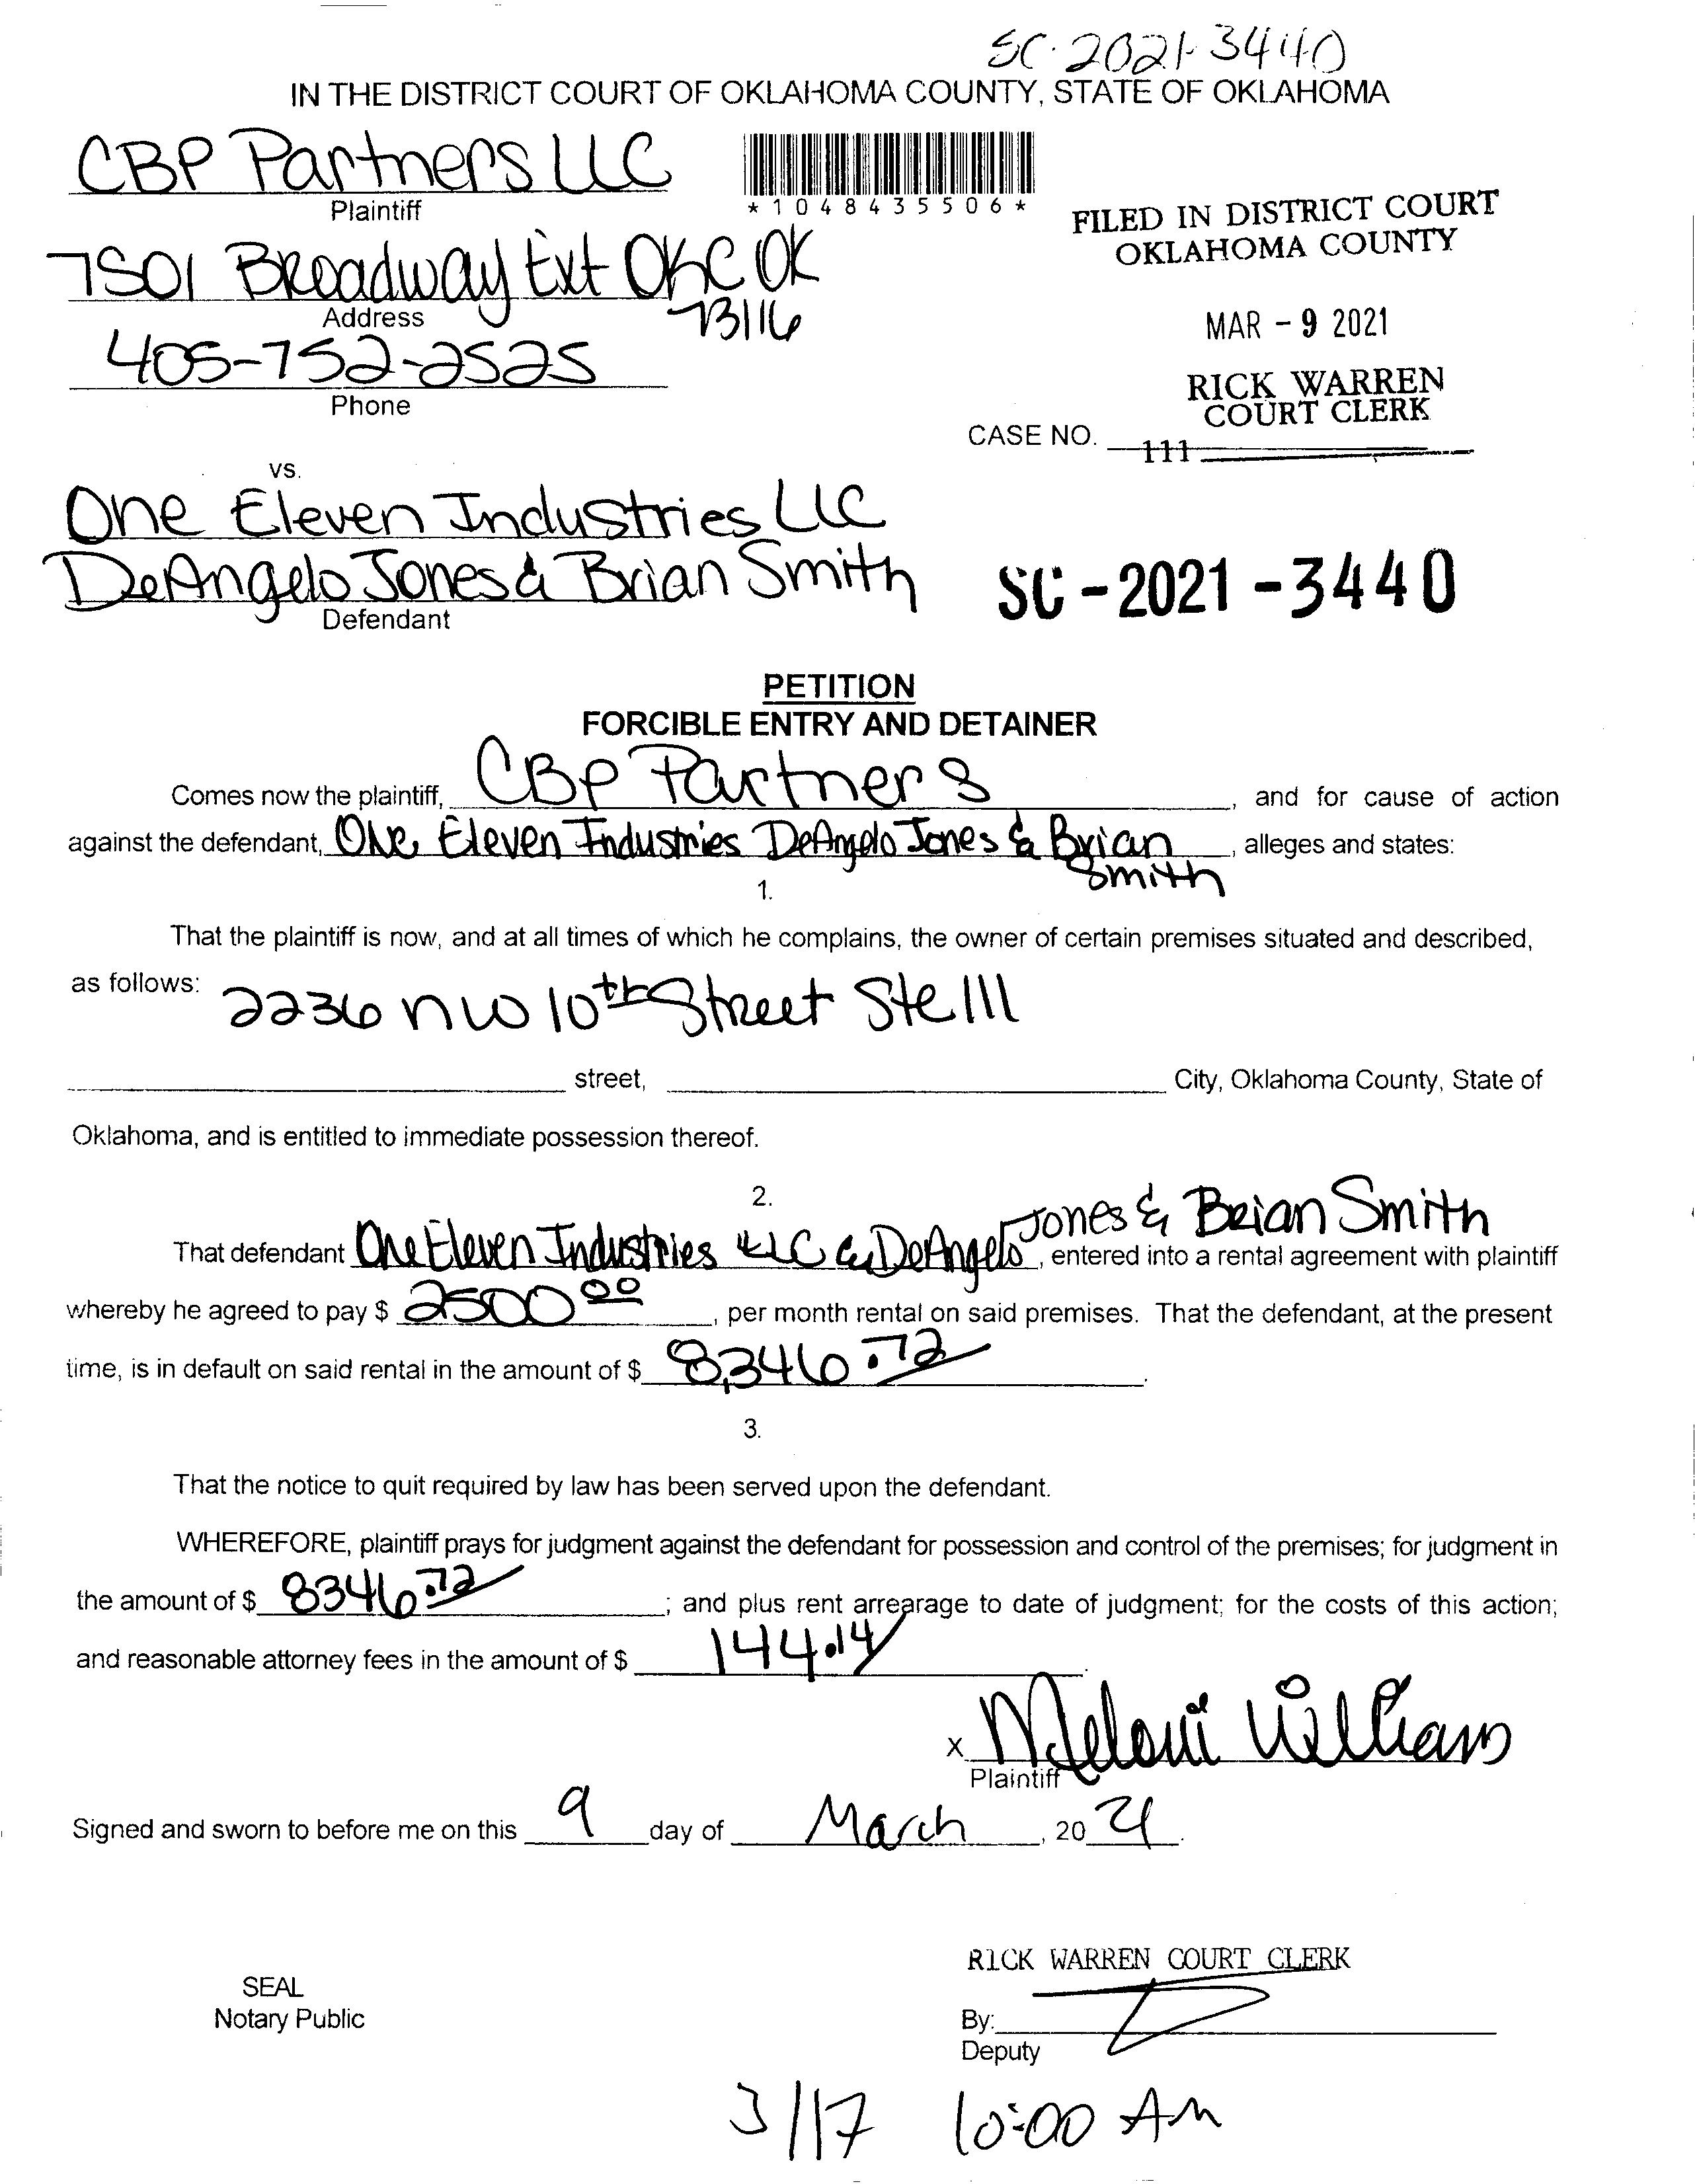 SC-2021-3440
IN THE DISTRICT COURT OF OKLAHOMA COUNTY, STATE OF OKLAHOMA
CBP Partners LLC
Plaintiff
*1048435506*
FILED IN DISTRICT COURT
OKLAHOMA COUNTY
7501 Broadway Ext OKC OK
73116
Address
MAR - 9 2021
405-752-2525
Phone
RICK WARREN
COURT CLERK
CASE NO. 111
vs.
One Eleven Industries LLC
DeAngelo Jones & Brian Smith
Defendant
SC - 2021 - 3440
PETITION
FORCIBLE ENTRY AND DETAINER
Comes now the plaintiff, CBP Partners, and for cause of action
against the defendant, One Eleven Industries DeAngelo Jones & Brian Smith, alleges and states:
1.
That the plaintiff is now, and at all times of which he complains, the owner of certain premises situated and described,
as follows: 2236 NW 10th Street Ste 111
street, City, Oklahoma County, State of
Oklahoma, and is entitled to immediate possession thereof.
2.
That defendant One Eleven Industries LLC & DeAngelo Jones & Brian Smith, entered into a rental agreement with plaintiff
whereby he agreed to pay $ 2500 00, per month rental on said premises. That the defendant, at the present
time, is in default on said rental in the amount of $ 8,346.72.
3.
That the notice to quit required by law has been served upon the defendant.
WHEREFORE, plaintiff prays for judgment against the defendant for possession and control of the premises; for judgment in
the amount of $ 8346.72; and plus rent arrearage to date of judgment; for the costs of this action;
and reasonable attorney fees in the amount of $ 144.14.
X Meloni Williams
Plaintiff
Signed and sworn to before me on this 9 day of March, 20 21.
RICK WARREN COURT CLERK
SEAL
Notary Public
By:
Deputy
3/17 10:00 AM